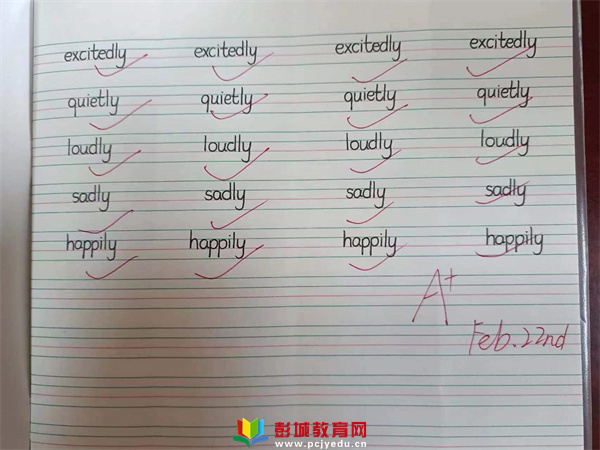 excitedly excitedly excitedly excitedly
quietly quietly quietly quietly
loudly loudly loudly loudly
sadly sadly sadly sadly
happily happily happily happily
A+
Feb.22nd
彭城教育网
www.pcjyedu.com.cn